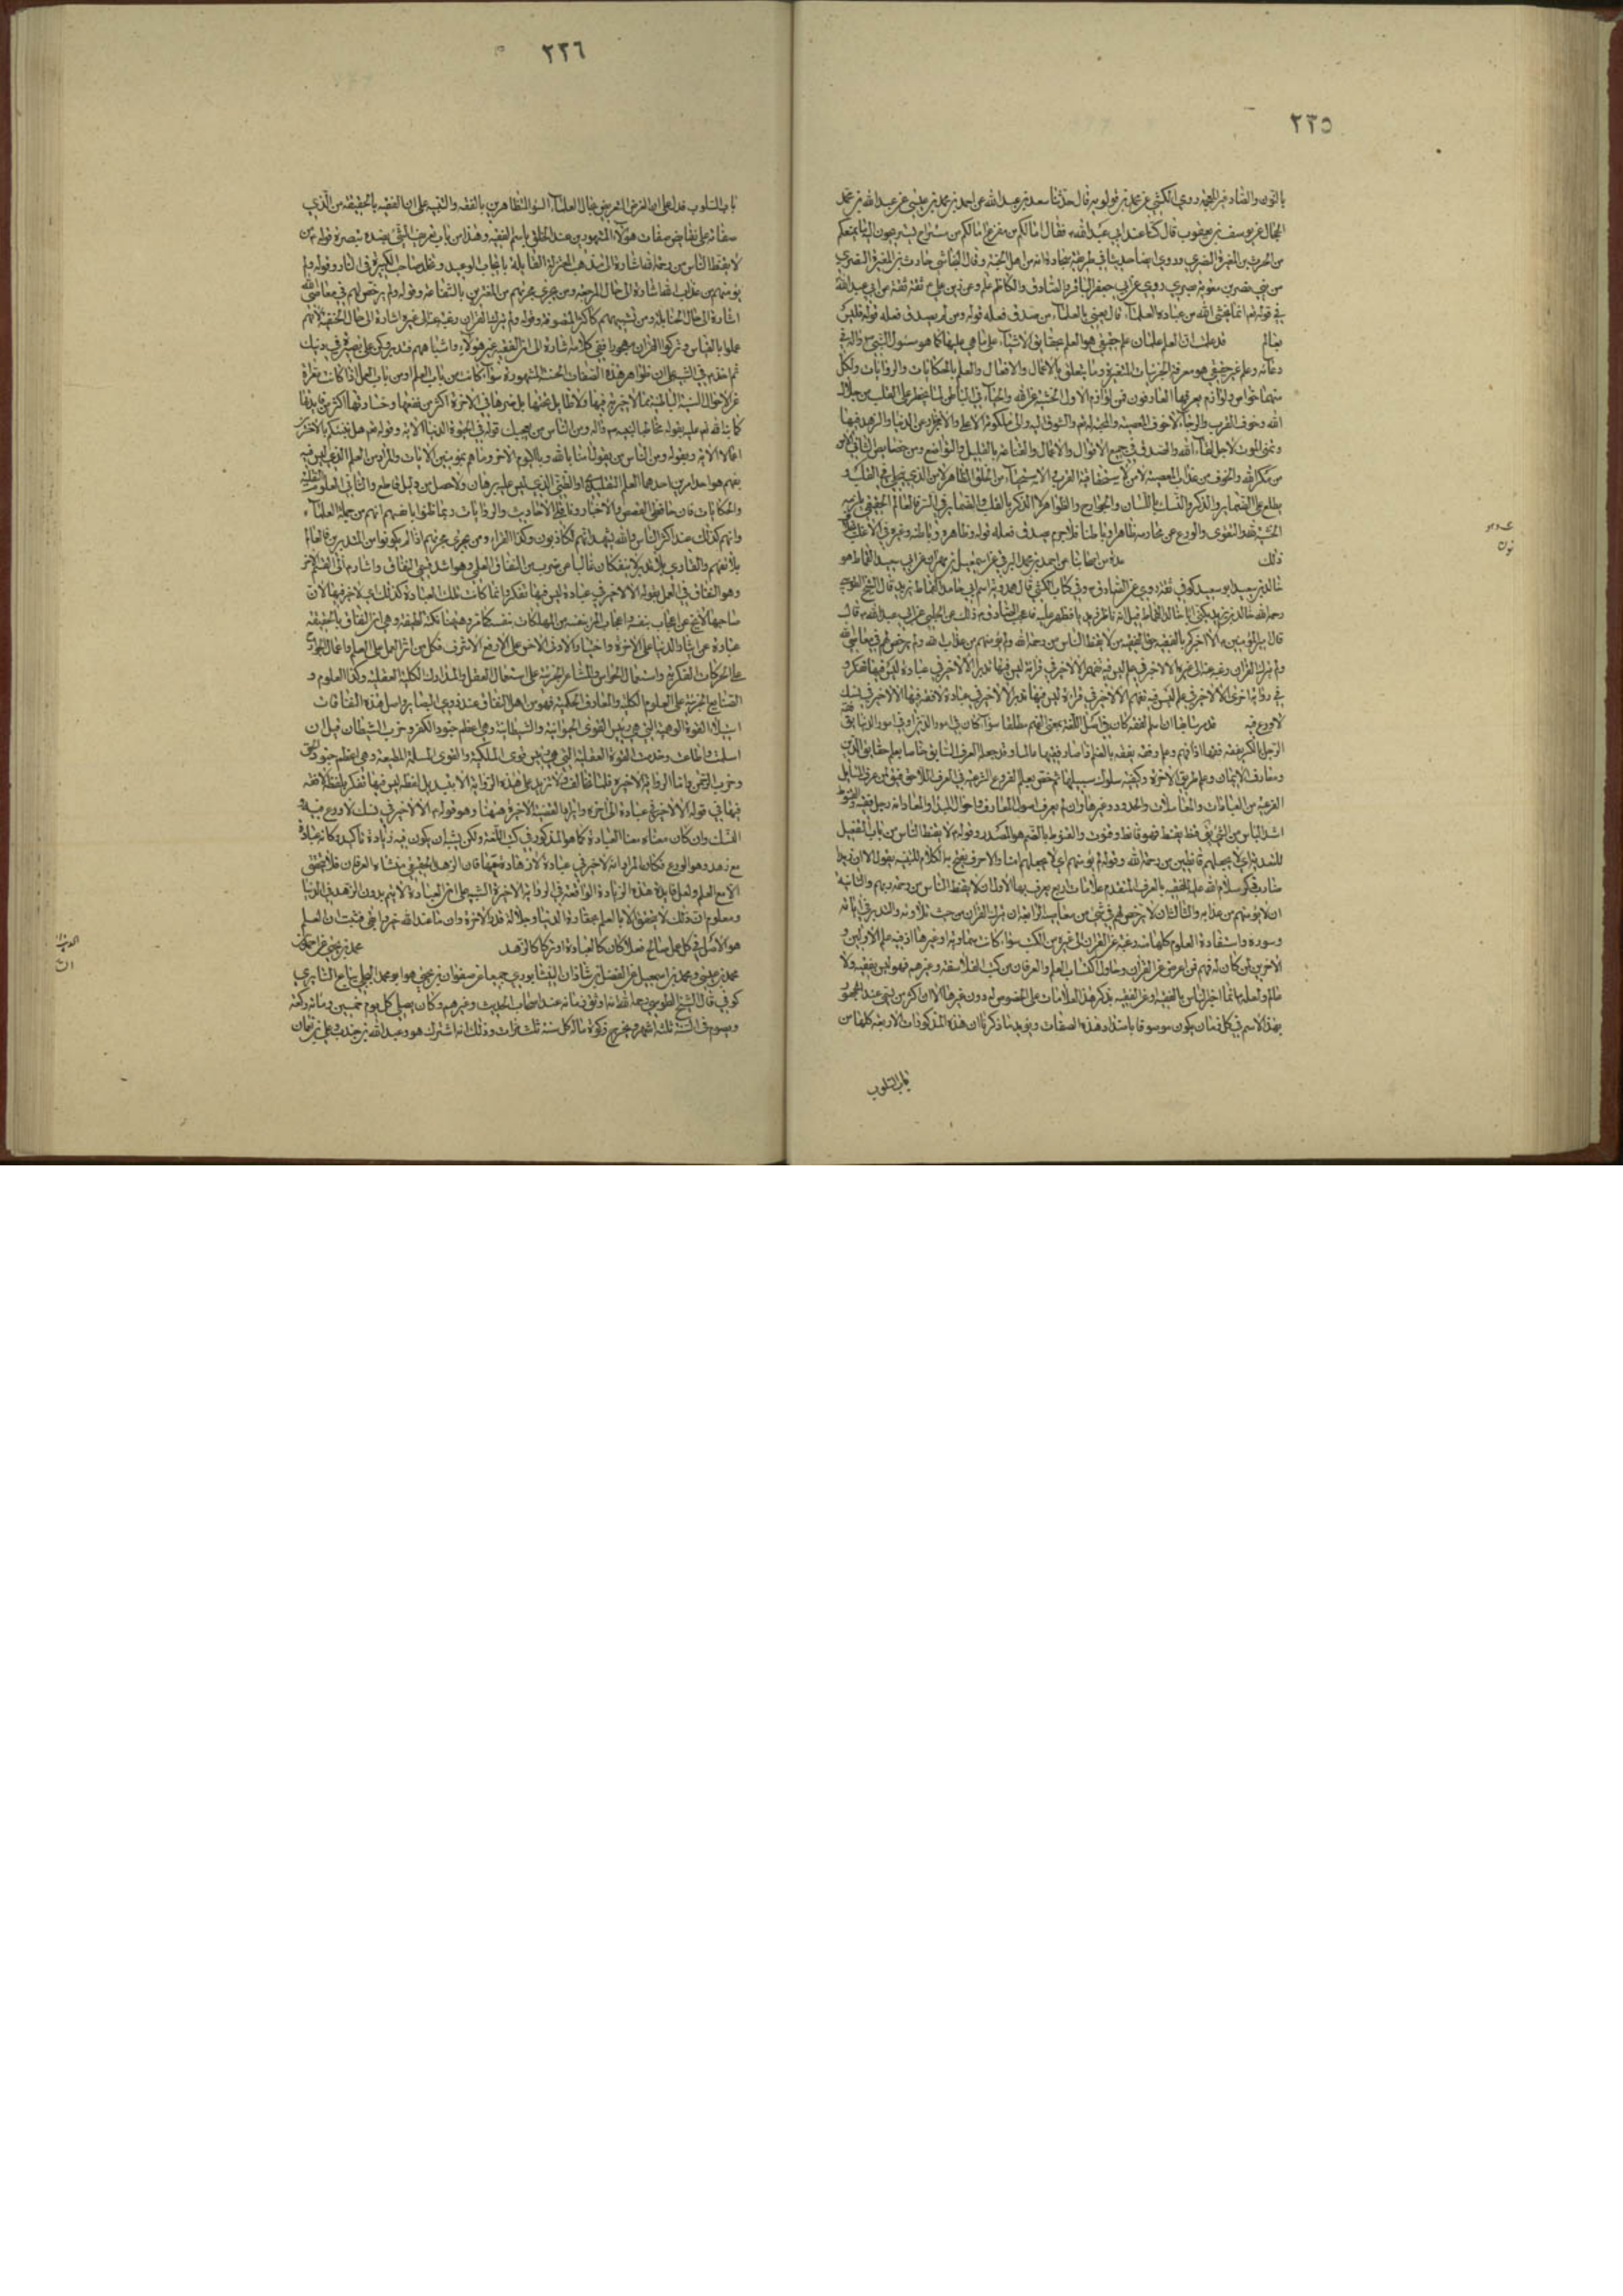 ٢٢٥
بالنون والصاد غير المعجمة روى الكشي عن محمد بن قولويه قال حدثنا سعد بن عبد الله عن احمد بن محمد بن عيسى عن عبد الله بن محمد
الحجال عن يونس بن يعقوب قال كنا عند ابي عبد الله فقال اما لكم من مفزع اما لكم من مستراح تستريحون اليه ما يمنعكم
من الحرث بن المغيرة النصري وروى ايضا حديثا في طريقه سجادة انه من اهل الجنة وقال النجاشي حارث بن المغيرة النصري
من بني نصر بن معوية بصري روى عن ابي جعفر الباقر والصادق والكاظم عليهم وعن زيد بن علي ع ثقة ثقة عن ابي عبد الله
في قوله تعالى انما يخشى الله من عباده العلماء قال يعني بالعلماء من صدق فعله قوله ومن لم يصدق فعله قوله فليس
بعالم قد علمت ان العلم علمان علم حقيقي هو العلم بحقايق الاشياء على ما هي عليها كما هو مسؤل النبي ص واله في
دعائه وعلم غير حقيقي هو معرفة الجزئيات المتغيرة وما يتعلق بالاعمال والافعال والعلم بالحكايات والروايات ولكل
منهما خواص ولوازم يعرفها العارفون فمن لوازم الاول الخشية من الله والحياء في الباطن
الله وخوف القرب والرجاء لا خوف المعصية والمحبة له تعالى والشوق اليه والى ملكوته الاعلى والانجراد عن الدنيا والزهد فيها
وتمنى الموت لاجل لقاء الله والصدق في جميع الاقوال والاعمال والقناعة بالقليل والتواضع ومن خصايص الثاني الامن
من مكر الله والخوف من عذاب المعصية
يطلع على الضماير والذكر والنسك باللسان والجوارح والظواهر لا الذكر بالقلب والضماير في السر فالعالم الحقيقي يلزمه
الخشية لله والتقوى والورع عن محارمه ظاهرا وباطنا فلا جرم يصدق فعله قوله وظاهره وباطنه وغيره في الاغلب بخلاف
ذلك عدة من اصحابنا عن احمد بن محمد البرقي عن اسمعيل بن مهران عن ابي سعيد القماط هو
خالد بن سعيد ابو سعيد كوفي ثقة روى عن الصادق ع وفي كتاب الكشي قال حمدويه اسم ابي خالد القماط يزيد قال الشيخ الطوسي
رحمه الله خالد بن يزيد يكنى ابا خالد القماط قيل انه ناظر زيديا فظهر عليه فاعجب الصادق ع ذلك عن الحلبي عن ابي عبد الله ع قال
قال امير المؤمنين ع الا اخبركم بالفقيه حق الفقيه من لا يقنط الناس من رحمة الله ولم يؤمنهم من عذاب الله ولم يرخص لهم في معاصي الله
ولم يترك القران رغبة عنه الى غيره الا لا خير في علم ليس فيه تفهم الا لا خير في قراءة ليس فيها تدبر الا لا خير في عبادة ليس فيها تفكر و
في رواية اخرى الا لا خير في علم ليس فيه تفهم الا لا خير في قراءة ليس فيها تدبر الا لا خير في عبادة لا فقه فيها الا لا خير في نسك
لا ورع فيه قد مر سابقا ان اسم الفقه كان في اصل اللغة بمعنى الفهم مطلقا سواء كان في امور الدين او في امور الدنيا يق فقه
الرجل بالكسر يفقه فقها اذا فهم وعلم وفقه يفقه بالضم اذا صار فقيها عالما وقد جعله العرف السابق خاصا بعلم حقايق الدين
ومعارف الايمان وعلم طريق الاخرة وكيفية سلوك سبيلها ثم خص بعلم الفروع الشرعية في العرف اللاحق
الفرعية من العبادات والمعاملات والحدود وغيرها وان لم يعرف اصول المعارف واحوال المبدأ والمعاد انه رجل فقيه والقنوط
اشد الياس من الشئ يق قنط يقنط فهو قانط وقنوط والقنوط بالضم هو المصدر وقوله لا يقنط الناس من باب التفعيل
للتعدية اي لا يجعلهم قانطين من رحمة الله وقوله لم يؤمنهم اي لا يجعلهم
صادف ذكر سلام الله عليه للفقيه بالعرف المتقدم علامات اربع يعرف بها الاولى ان لا يقنط الناس من رحمة ربهم والثانية
ان لا يؤمنهم من عذابه والثالثة ان لا يرخص لهم في شئ من معاصيه الرابعة ان يترك القران من حيث تلاوته والتدبر في اياته
وسوره واستفادة العلوم كلها منه رغبة عن القران الى غيره من الكتب سواء كانت سماوية او غيرها اذ فيه علم الاولين و
الاخرين لمن كان له فهم فمن اعرض عن القران وحاول اكتساب العلم والعرفان من كتب الفلاسفة وغيرهم فهو ليس بفقيه ولا
عالم ولعله ع انما اخبر الناس بالفقيه وعن الفقيه بذكر هذه العلامات على الخصوص له دون غيرها لان اكثر من يسمى عند الجمهور
بهذا الاسم في كل زمان يكون موصوفا باضداد هذه الصفات ويؤيد ما ذكرنا ان هذه المذكورات الاربعة كلها من
باب السلوب
٢٢٦
باب السلوب فدل على ان الغرض التعريض بحال العلماء السوء المتظاهرين بالفقه والتنبيه على ان الفقيه بالحقيقة من الذي
صفاته على نقايض صفات هؤلاء المشهورين عند الخلق باسم الفقيه وهذا من باب تعريف الشئ بضده تبصرة قوله من
لا يقنط الناس من رحمة الله اشارة الى مذهب المعتزلة القايلة بايجاب الوعيد وتخليد صاحب الكبيرة في النار وقوله ولم
يؤمنهم من عذاب الله اشارة الى حال المرجئة ومن يجري مجريهم من المغترين بالشفاعة وقوله ولم يرخص لهم في معاصي الله
اشارة الى حال الحنابلة ومن تشبه بهم كاكثر المتصوفة وقوله ولم يترك القران رغبة عنه الى غيره اشارة الى حال الحنفية لانهم
عملوا بالقياس وتركوا القران مهجورا ففي كلامه اشارة الى ان الفقيه غير هؤلاء واشباههم فتدبر وكن على بصيرة في دينك
ثم اخذ ع في التنبيه على ان ظواهر هذه الصفات الحسنة المشهورة سواء كانت من باب العلم او من باب العمل اذا كانت معراة
عن الاحوال السنية الباطنية مما لا خير فيها ولا طايل تحتها بل ضرها في الاخرة اكثر من نفعها وخسارتها اكثر من فايدتها
كما نبه الله تعالى عليه بقوله مخاطبا لنبيه ص واله ومن الناس من يعجبك قوله في الحيوة الدنيا الاية وقوله تعالى هل ننبئكم بالاخسرين
اعمالا الاية وبقوله ومن الناس من يقول امنا بالله وباليوم الاخر وما هم بمؤمنين الايات والمراد من العلم الذي ليس فيه
تفهم هو احد امرين احدهما العلم التقليدي او الظني الذي ليس عليه برهان ولا حصل من دليل قاطع والثاني العلوم النقلية
والحكايات فان حافظي القصص والاخبار وناقلي الاحاديث والروايات ربما ظنوا بانفسهم انهم من جملة العلماء
وانهم كذلك عند اكثر الناس والله يشهد انهم لكاذبون وكذا القراء ومن يجري مجريهم اذا لم يكونوا من المتدبرين فالعالم
بلا تفهم والقاري بلا تدبر لا ينفكان غالبا من ضرب من النفاق العلمي وهو اشد قسمي النفاق واشار ع الى القسم الاخر
وهو النفاق في العمل بقوله الا لا خير في عبادة ليس فيها تفكر وانما كانت تلك العبادة كذلك اي لا خير فيها لان
صاحبها لا ينجو من اعجاب بنفسه واعجاب المرء بنفسه من المهلكات بنفسه كما مر وههنا نكتة لطيفة وهي ان النفاق بالحقيقة
عبارة عن ايثار الدنيا على الاخرة واختيار الادون الاخس على الارفع الاشرف فكل من اثر العمل على العلم واعمال الجوارح
على الحركات الفكرية واستعمال الحواس والمشاعر الجزئية على استعمال العقل والمدارك الكلية العقلية وكذا العلوم و
الصنايع الجزئية على العلوم الكلية والمعارف الحكمية فهو من اهل النفاق عند ذوي البصاير واصل هذه النفاقات
استيلاء القوة الوهمية التي هي رئيس القوى الحيوانية والشيطانية وهي اعظم جنود الكفر وحزب الشيطان قبل ان
اسلمت واطاعت وخدمت القوة العقلية التي هي رئيس قوى الملكية والقوى المسلمة المطيعة وهي اعظم جنود الحق
وحزب الرحمن واما الرواية الاخيرة فلما خالف ولا تزيد على هذه الرواية الا بتبديل لفظة ليس فيها تفكر بلفظة لا فقه
فيها في قوله الا لا خير في عبادة الى اخره وايراد القضية الاخيرة ههنا وهو قوله ع الا لا خير في نسك لا ورع فيه
النسك وان كان معناه معنا العبادة كما هو المذكور في كتب اللغة ولكن يشبه ان يكون فيه زيادة تاكيد وكانه عبادة
مع زهد وهو الورع فكان المراد انه لا خير في عبادة لا زهادة فيها فان الزهد الحقيقي منشاءه العرفان فلا يتحقق
الا مع العلم ولعل فايدة هذه الزيادة الواقعة في الرواية الاخيرة التنبيه على ان العبادة لا يتم بدون الزهد في الدنيا
ومعلوم ان ذلك لا يتحقق الا بالعلم بحقارة الدنيا وجلالة قدر الاخرة وان ما عند الله خير وابقى فثبت ان العلم
هو الاصل في كل عمل صالح فعلا كان كالعبادة او تركا كالزهد محمد بن يحيى عن احمد بن
محمد بن عيسى ومحمد بن اسمعيل عن الفضل بن شاذان النيشابوري جميعا عن صفوان بن يحيى هو ابو محمد البجلي بياع السابري
كوفي قال الشيخ الطوسي رحمه الله انه اوثق زمانه عند اصحاب الحديث وغيرهم وكان يصلي كل يوم خمسين ومائة ركعة
ويصوم في السنة ثلثة اشهر ويخرج زكوة ماله كل سنة ثلث مرات وذلك انه اشترك هو وعبد الله بن جندب وعلي بن نعمان